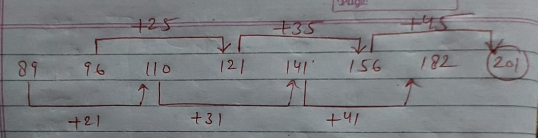 Page:
+25 +35 +45
89 96 110 121 141 156 182 201
+21 +31 +41